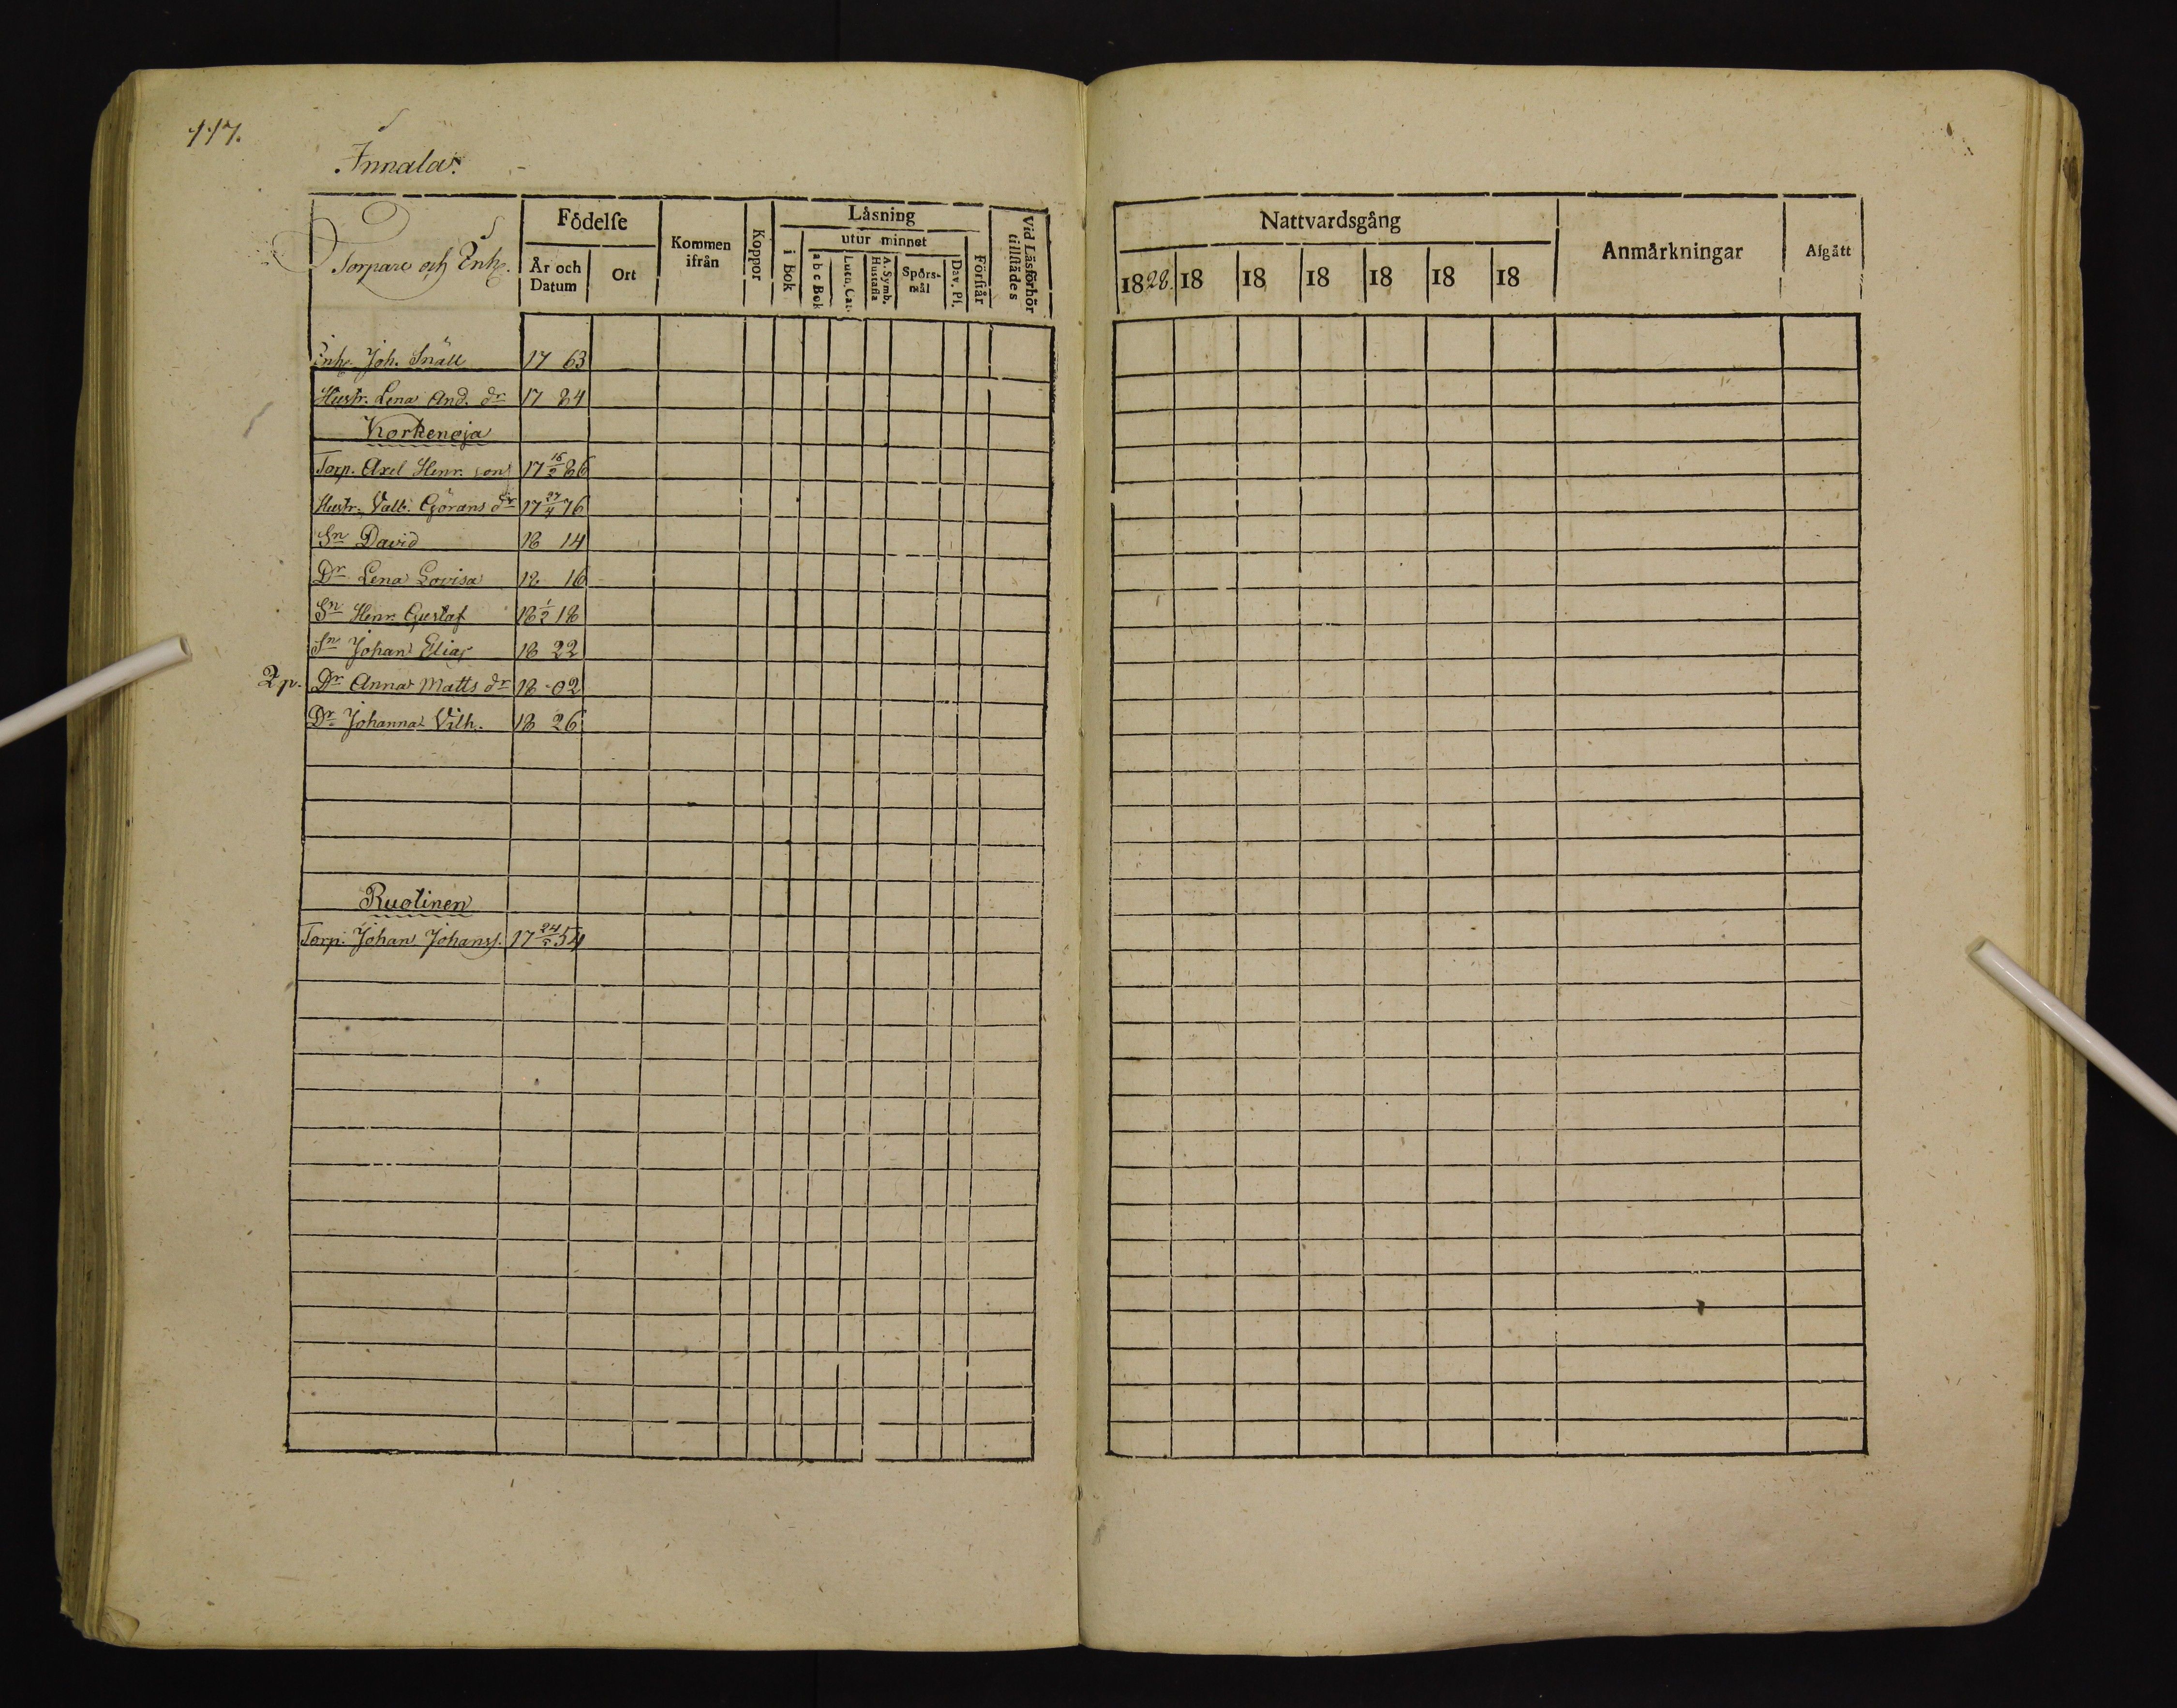 117.
Innala.
Torpare och Enh.
Födelse
År och Datum
Ort
Kommen ifrån
Koppor
Låsning
i Bok
utur minnet
a b c Bok
Luth. Cat.
A. Symb. Hustafla
Spörsmål
Dav. Ps.
Förstår
Vid Läsförhör tillstådes
Nattvardsgång
1828. 18 18 18 18 18 18
Anmårkningar
Afgått
Enh. Joh. Snäll 17 63
Hustr. Lena And. dr 17 84
Korkenoja
Torp. Axel Henr. son 17 16/2 86
Hustr. Valb. Görans dr 17 27/4 76
Sn David 18 14
Dr Lena Lovisa 18 16
Sn Henr. Gustaf 18 1/2 18
Sn Johan Elias 18 22
2 p. Dr Anna Matts dr 18 02
Dr Johanna Vilh. 18 26
Ruotinen
Torp. Johan Johanss. 17 24/5 54